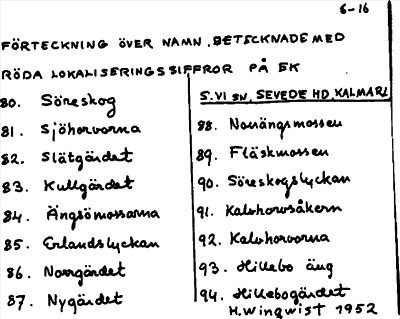 6-16
FÖRTECKNING ÖVER NAMN, BETECKNADE MED
RÖDA LOKALISERINGSSIFFROR PÅ EK
S. VI SN, SEVEDE HD, KALMAR L
80. Söreskog
81. Sjöhorvorna
82. Slätgärdet
83. Kullgärdet
84. Ängsömossarna
85. Erlandslyckan
86. Norrgärdet
87. Nygärdet
88. Norrängsmossen
89. Fläskmossen
90. Söreskogslyckan
91. Kalvhorvsåkern
92. Kalvhorvorna
93. Hillebo äng
94. Hillebogärdet
H. Wingwist 1952